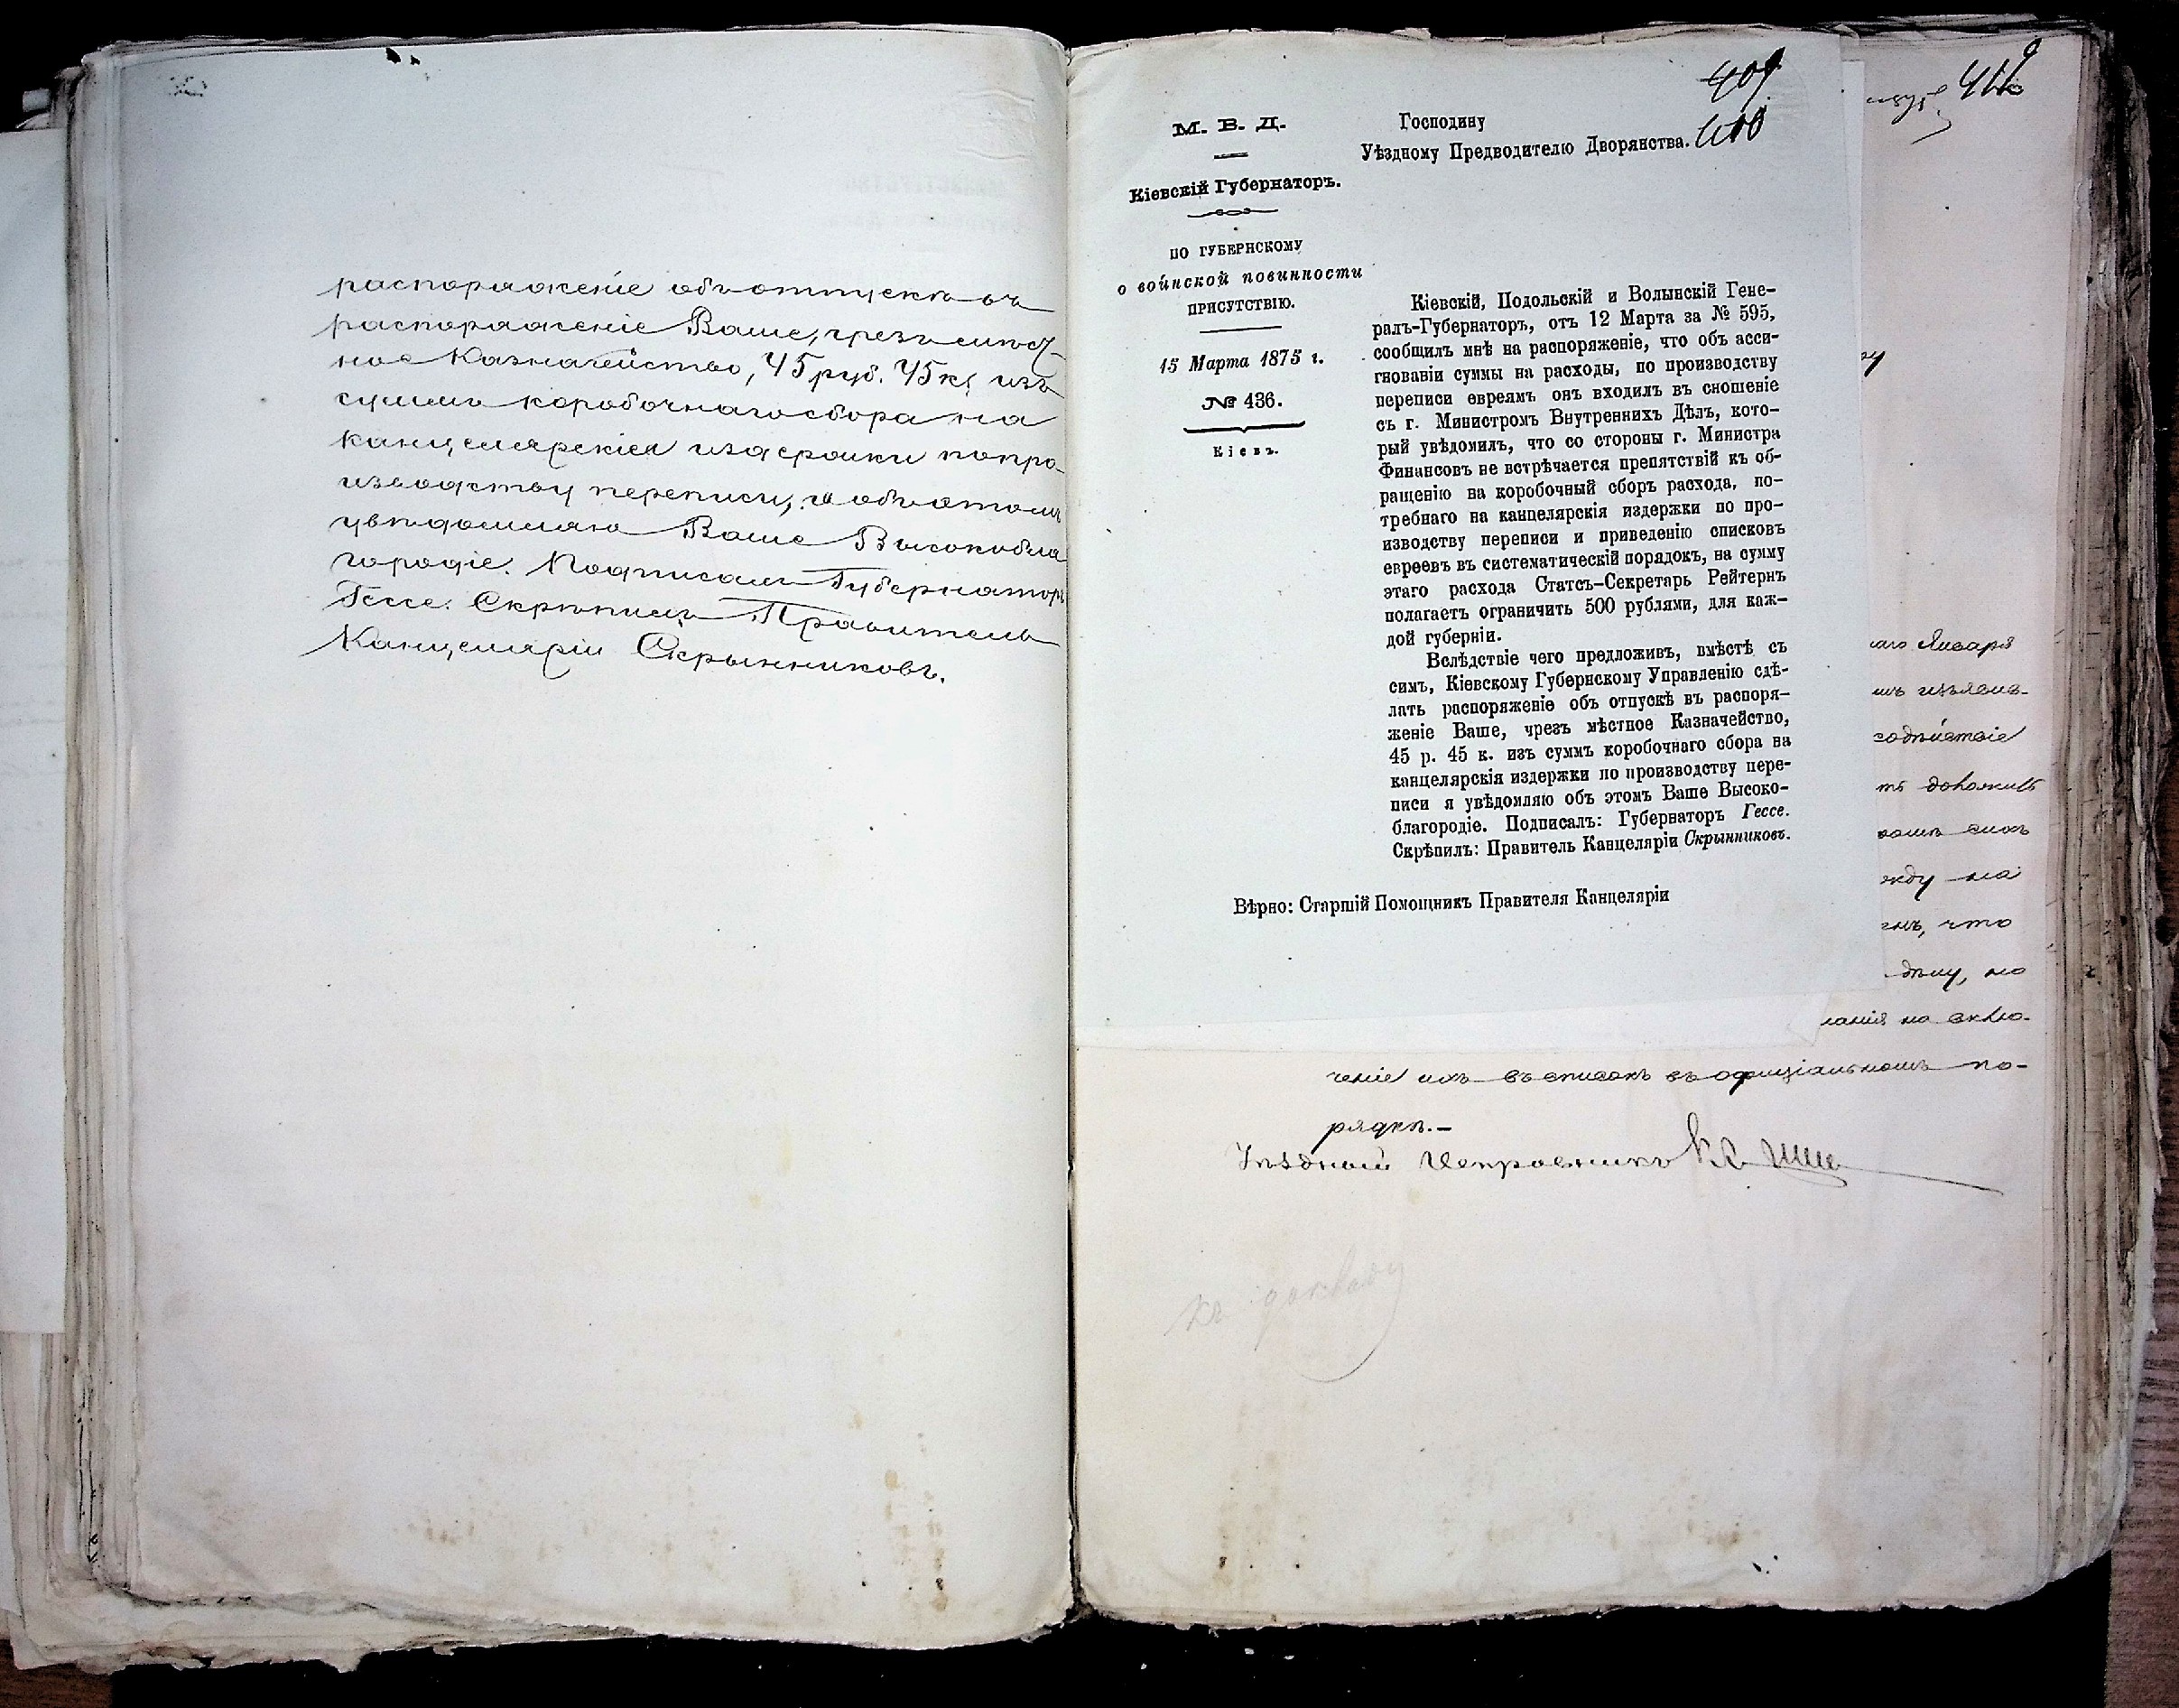 распоряженіе объ отпускѣ въ
распоряженіе Ваше, чрезъ мѣст-
ное Казначейство, 45 руб. 45 к., изъ
суммъ коробочнаго сбора на
канцелярскія издержки по про-
изводству переписи, и объ этомъ
увѣдомляю Ваше Высокобла
городіе. Подписалъ Губернаторъ
Гессе. Скрѣпилъ Правитель
Канцеляріи Скрынниковъ.
409
410
М. В. Д.
Кіевскій Губернаторъ.
ПО ГУБЕРНСКОМУ
о воинской повинности
ПРИСУТСТВІЮ.
15 Марта 1875 г.
№ 436.
Кіевъ.
Господину
Уѣздному Предводителю Дворянства.
Кіевскій, Подольскій и Волынскій Гене-
ралъ-Губернаторъ, отъ 12 Марта за № 595,
сообщилъ мнѣ на распоряженіе, что объ асси-
гнованіи суммы на расходы, по производству
переписи евреямъ онъ входилъ въ сношеніе
съ г. Министромъ Внутреннихъ Дѣлъ, кото-
рый увѣдомилъ, что со стороны г. Министра
Финансовъ не встрѣчается препятствій къ об-
ращенію на коробочный сборъ расхода, по-
требнаго на канцелярскія издержки по про-
изводству переписи и приведенію списковъ
евреевъ въ систематическій порядокъ, на сумму
этаго расхода Статсъ-Секретарь Рейтернъ
полагаетъ ограничить 500 рублями, для каж-
дой губерніи.
Вслѣдствіе чего предложивъ, вмѣстѣ съ
симъ, Кіевскому Губернскому Управленію сдѣ-
лать распоряженіе объ отпускѣ въ распоря-
женіе Ваше, чрезъ мѣстное Казначейство,
45 р. 45 к. изъ суммъ коробочнаго сбора на
канцелярскія издержки по производству пере-
писи я увѣдомляю объ этомъ Ваше Высоко-
благородіе. Подписалъ: Губернаторъ Гессе.
Скрѣпилъ: Правитель Канцеляріи Скрынниковъ.
Вѣрно: Старшій Помощникъ Правителя Канцеляріи
Января
содѣйствіе
на
что
но
на вклю-
ченіе ихъ въ списокъ въ официіальномъ по-
рядкѣ.-
Уѣздный Исправникъ
Къ докладу